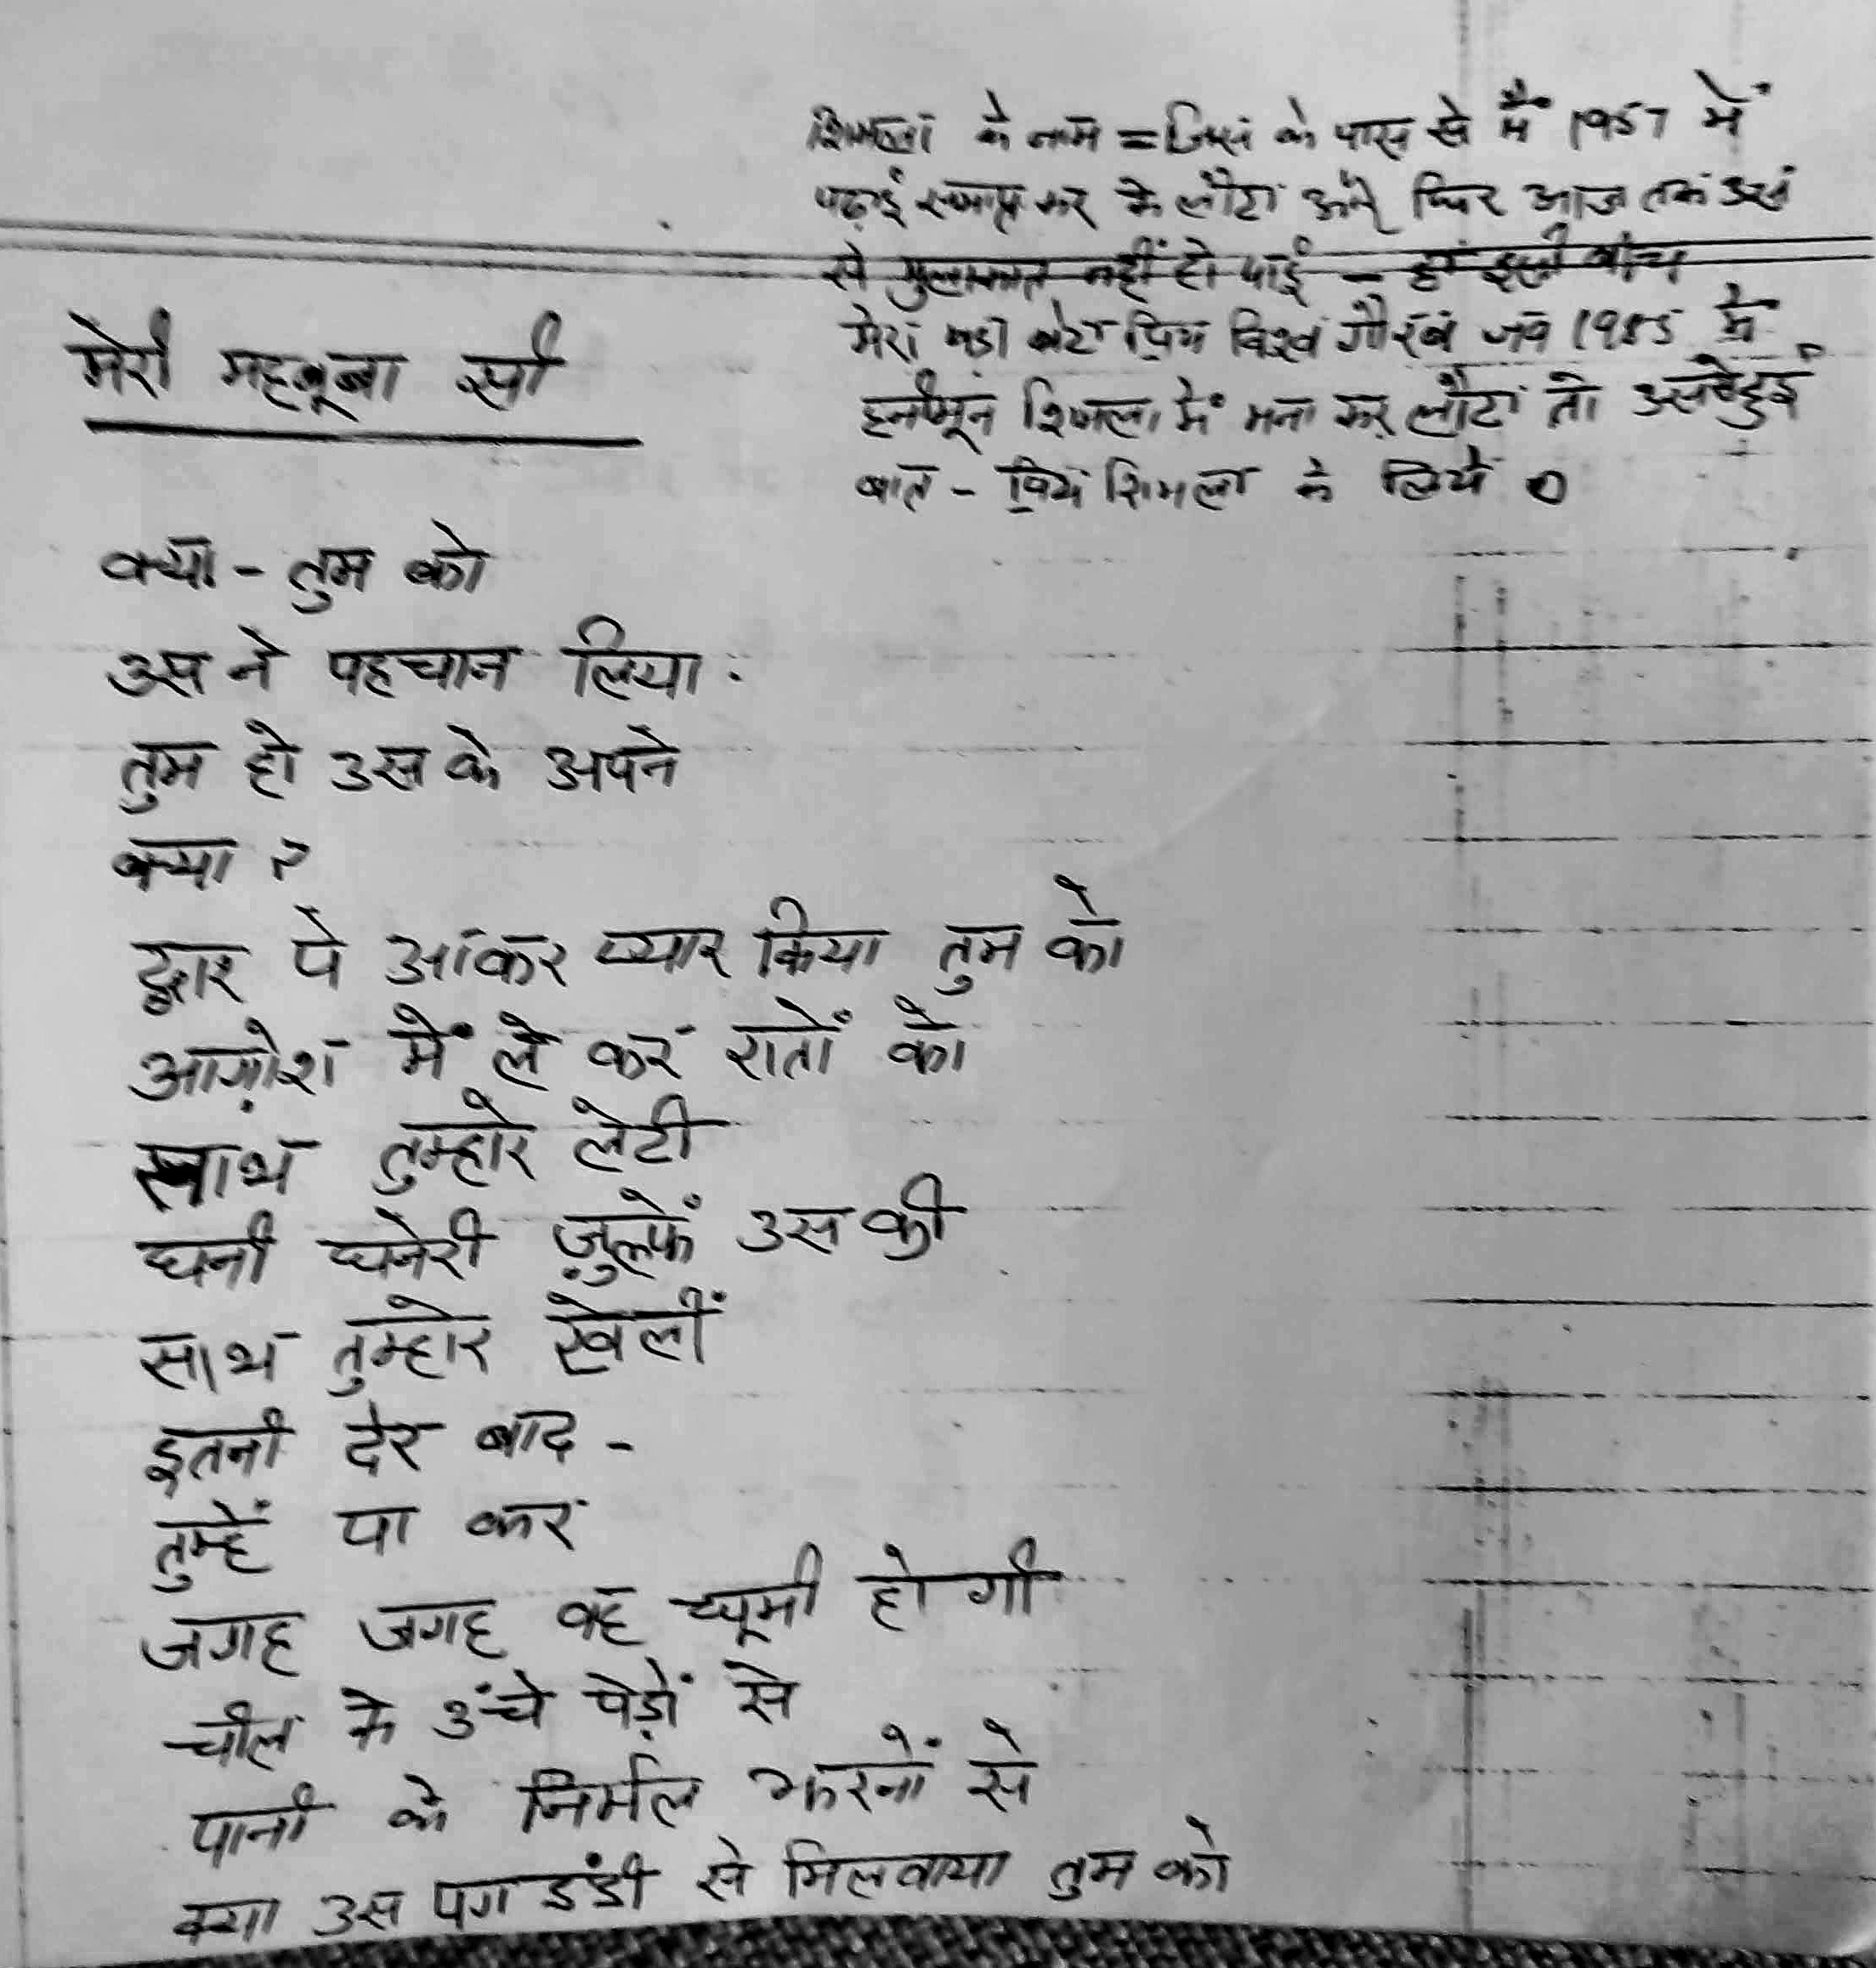 शिमला के नाम = जिस के पास से मैं 1957 में
पढ़ाई समाप्त कर के लौटा और फिर आज तक उस
से मुलाकात नहीं हो पाई - हां इसी बीच
मेरा बड़ा बेटा प्रिय विश्व गौरव जब 1985 में
हनीमून शिमला में मना कर लौटा तो उससे हुई
बात - प्रिय शिमला के लिये 0
मेरी महबूबा सी
क्या - तुम को
उस ने पहचान लिया .
तुम हो उस के अपने
क्या ?
द्वार पे आकर प्यार किया तुम को
आग़ोश में ले कर रातों को
साथ तुम्हारे लेटी
घनी घनेरी ज़ुल्फें उस की
साथ तुम्हारे खेलीं
इतनी देर बाद -
तुम्हें पा कर
जगह जगह वह घूमी हो गी
चील के उंचे पेड़ों से
पानी के निर्मल झरनों से
क्या उस पग डंडी से मिलवाया तुम को